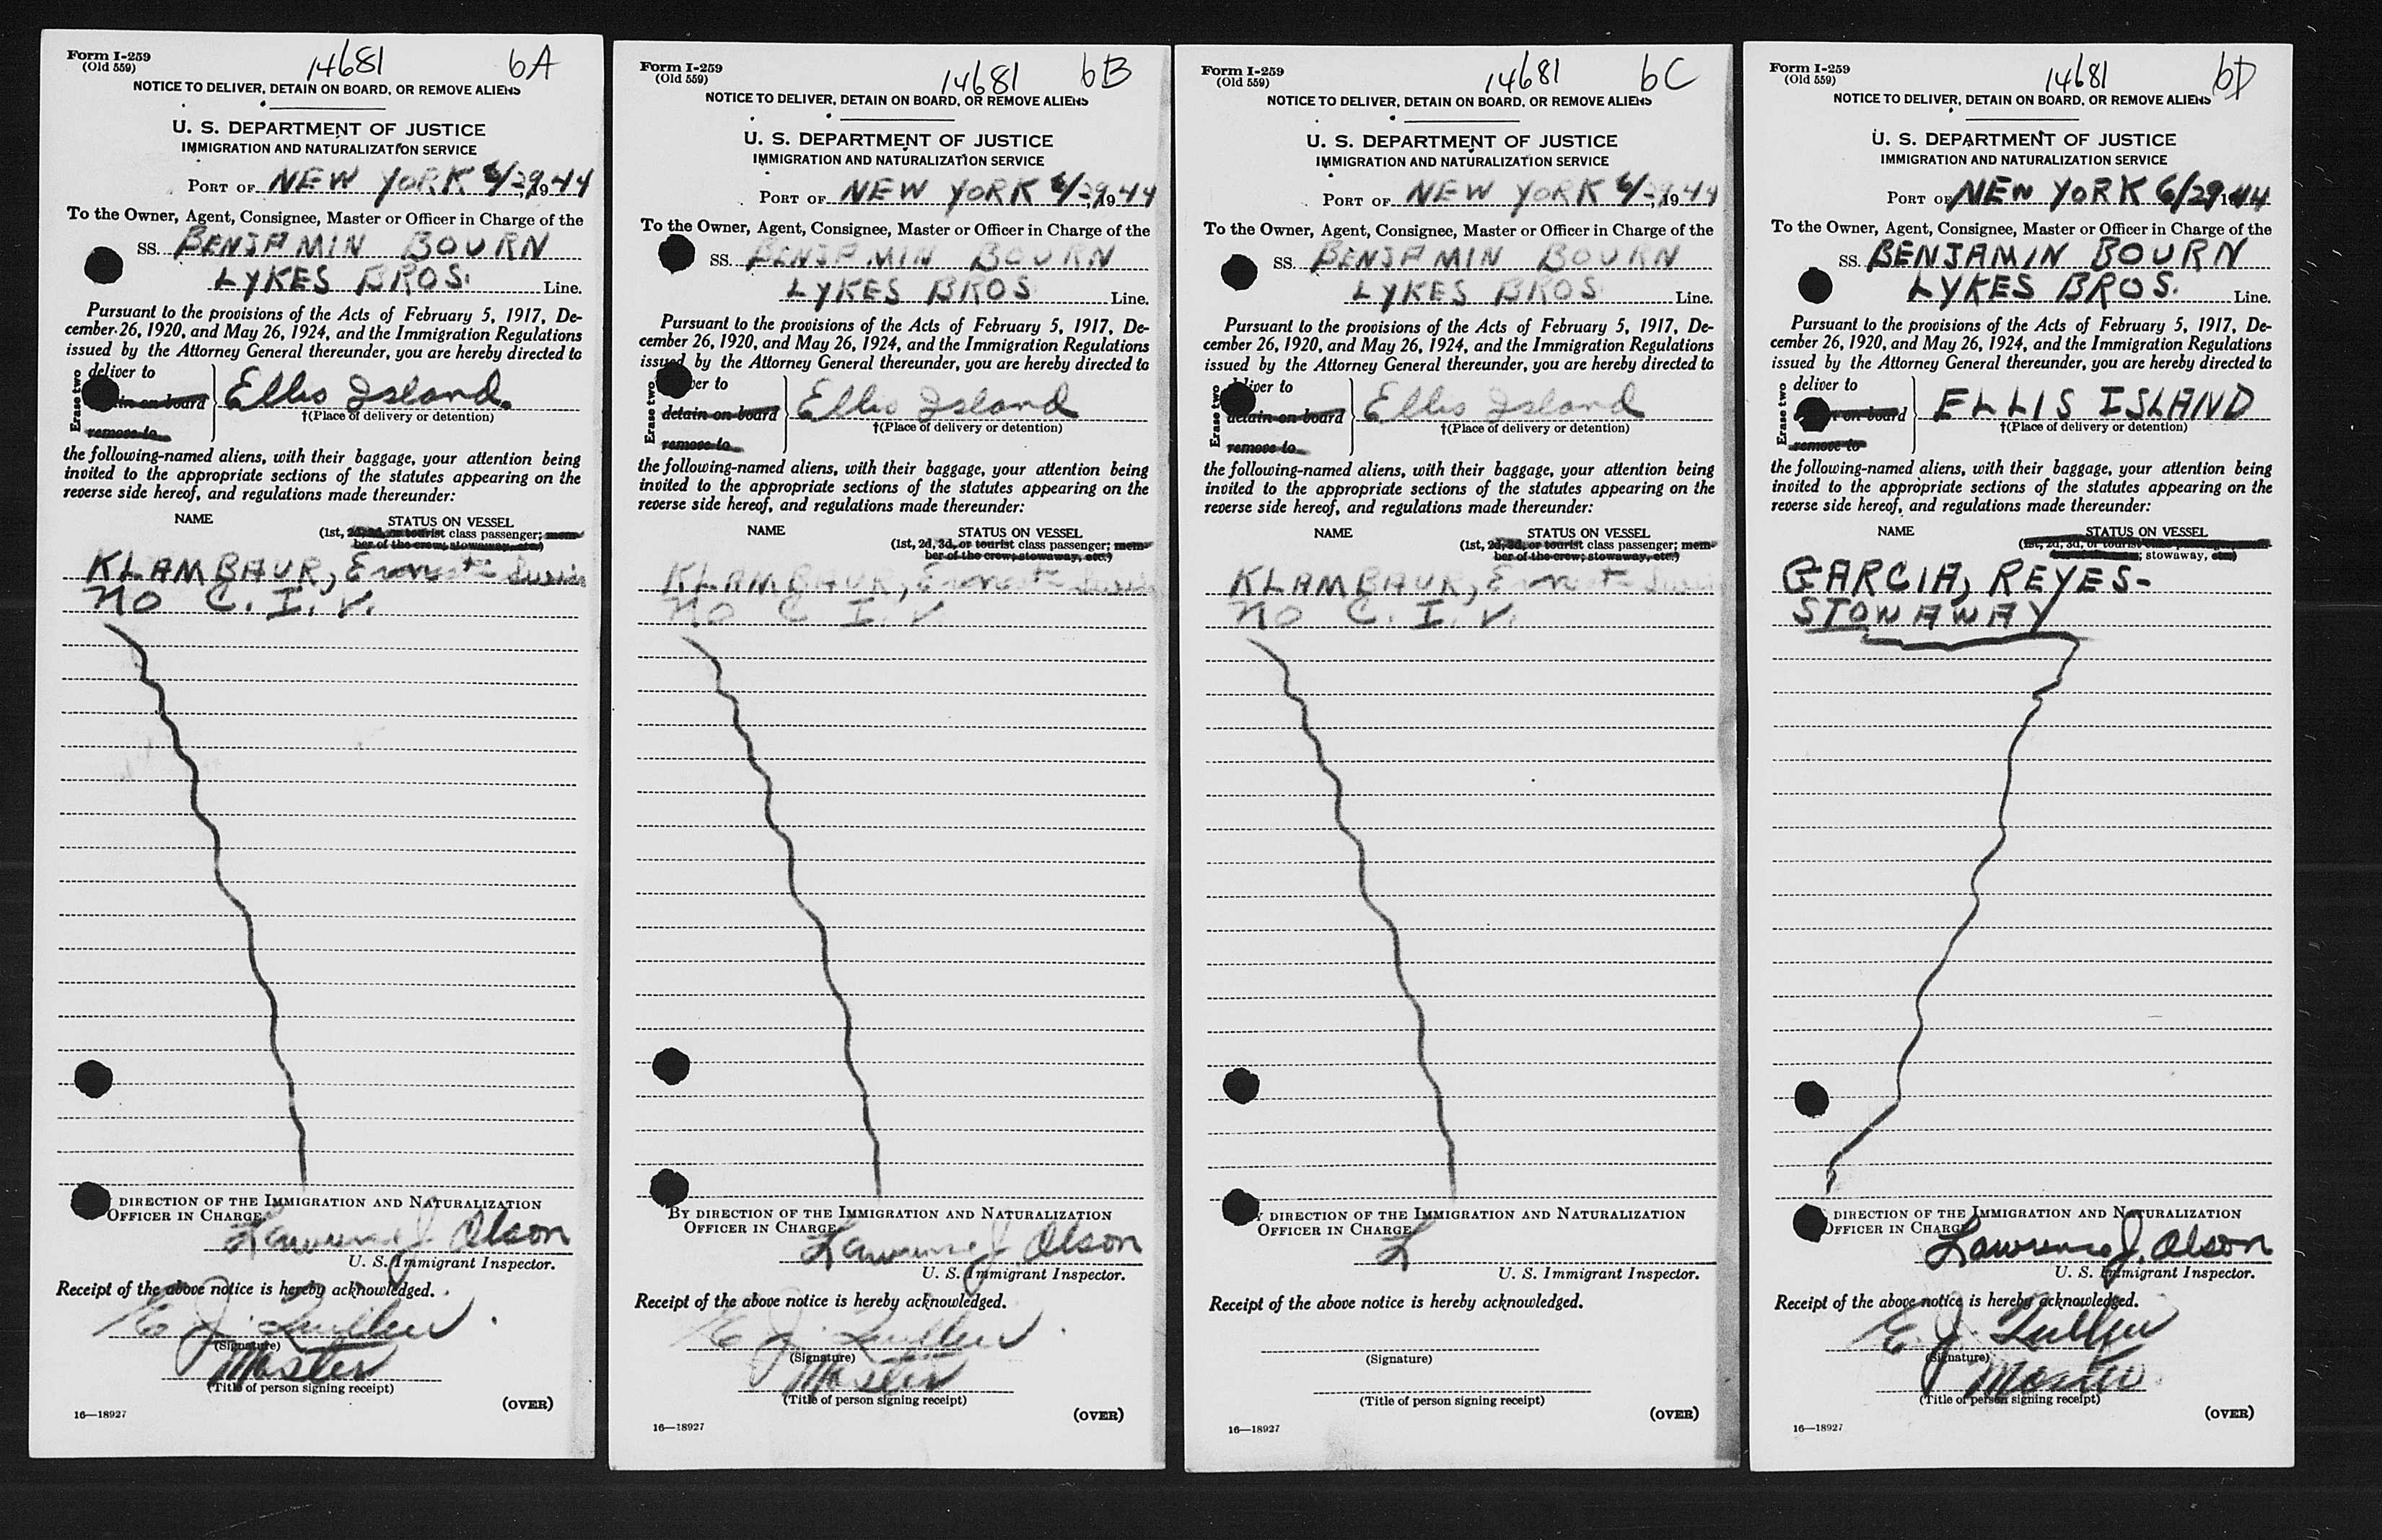 Form I-259
(Old 559)
14681 6A
NOTICE TO DELIVER, DETAIN ON BOARD, OR REMOVE ALIENS
U. S. DEPARTMENT OF JUSTICE
IMMIGRATION AND NATURALIZATION SERVICE
PORT OF NEW YORK 6/29, 1944
To the Owner, Agent, Consignee, Master or Officer in Charge of the
SS. BENJAMIN BOURN
LYKES BROS. Line.
Pursuant to the provisions of the Acts of February 5, 1917, De-
cember 26, 1920, and May 26, 1924, and the Immigration Regulations
issued by the Attorney General thereunder, you are hereby directed to
Erase two
deliver to
detain on board
remove to
Ellis Island.
†(Place of delivery or detention)
the following-named aliens, with their baggage, your attention being
invited to the appropriate sections of the statutes appearing on the
reverse side hereof, and regulations made thereunder:
NAME STATUS ON VESSEL
(1st, 2d, 3d, or tourist class passenger; mem-
ber of the crew; stowaway, etc.)
KLAMBAUR, Ernest
NO C. I. V.
DIRECTION OF THE IMMIGRATION AND NATURALIZATION
OFFICER IN CHARGE
Lawrence J. Olson
U. S. Immigrant Inspector.
Receipt of the above notice is hereby acknowledged.
E. J.
(Signature)
Master
(Title of person signing receipt)
(OVER)
16—18927
Form I-259
(Old 559)
14681 6B
NOTICE TO DELIVER, DETAIN ON BOARD, OR REMOVE ALIENS
U. S. DEPARTMENT OF JUSTICE
IMMIGRATION AND NATURALIZATION SERVICE
PORT OF NEW YORK 6/29, 1944
To the Owner, Agent, Consignee, Master or Officer in Charge of the
SS. BENJAMIN BOURN
LYKES BROS Line.
Pursuant to the provisions of the Acts of February 5, 1917, De-
cember 26, 1920, and May 26, 1924, and the Immigration Regulations
issued by the Attorney General thereunder, you are hereby directed to
Erase two
deliver to
detain on board
remove to
Ellis Island
†(Place of delivery or detention)
the following-named aliens, with their baggage, your attention being
invited to the appropriate sections of the statutes appearing on the
reverse side hereof, and regulations made thereunder:
NAME STATUS ON VESSEL
(1st, 2d, 3d, or tourist class passenger; mem-
ber of the crew; stowaway, etc.)
KLAMBAUR, Ernest
NO C. I. V.
BY DIRECTION OF THE IMMIGRATION AND NATURALIZATION
OFFICER IN CHARGE
Lawrence J. Olson
U. S. Immigrant Inspector.
Receipt of the above notice is hereby acknowledged.
E. J.
(Signature)
Master
(Title of person signing receipt)
(OVER)
16—18927
Form I-259
(Old 559)
14681 6C
NOTICE TO DELIVER, DETAIN ON BOARD, OR REMOVE ALIENS
U. S. DEPARTMENT OF JUSTICE
IMMIGRATION AND NATURALIZATION SERVICE
PORT OF NEW YORK 6/29, 1944
To the Owner, Agent, Consignee, Master or Officer in Charge of the
SS. BENJAMIN BOURN
LYKES BROS. Line.
Pursuant to the provisions of the Acts of February 5, 1917, De-
cember 26, 1920, and May 26, 1924, and the Immigration Regulations
issued by the Attorney General thereunder, you are hereby directed to
Erase two
deliver to
detain on board
remove to
Ellis Island
†(Place of delivery or detention)
the following-named aliens, with their baggage, your attention being
invited to the appropriate sections of the statutes appearing on the
reverse side hereof, and regulations made thereunder:
NAME STATUS ON VESSEL
(1st, 2d, 3d, or tourist class passenger; mem-
ber of the crew; stowaway, etc.)
KLAMBAUR, Ernest
NO C. I. V.
DIRECTION OF THE IMMIGRATION AND NATURALIZATION
OFFICER IN CHARGE
L
U. S. Immigrant Inspector.
Receipt of the above notice is hereby acknowledged.
(Signature)
(Title of person signing receipt)
(OVER)
16—18927
Form I-259
(Old 559)
14681 6D
NOTICE TO DELIVER, DETAIN ON BOARD, OR REMOVE ALIENS
U. S. DEPARTMENT OF JUSTICE
IMMIGRATION AND NATURALIZATION SERVICE
PORT OF NEW YORK 6/29 1944
To the Owner, Agent, Consignee, Master or Officer in Charge of the
SS. BENJAMIN BOURN
LYKES BROS. Line.
Pursuant to the provisions of the Acts of February 5, 1917, De-
cember 26, 1920, and May 26, 1924, and the Immigration Regulations
issued by the Attorney General thereunder, you are hereby directed to
Erase two
deliver to
detain on board
remove to
ELLIS ISLAND
†(Place of delivery or detention)
the following-named aliens, with their baggage, your attention being
invited to the appropriate sections of the statutes appearing on the
reverse side hereof, and regulations made thereunder:
NAME STATUS ON VESSEL
(1st, 2d, 3d, or tourist class passenger; mem-
ber of the crew; stowaway, etc.)
GARCIA, REYES-
STOWAWAY
DIRECTION OF THE IMMIGRATION AND NATURALIZATION
OFFICER IN CHARGE
Lawrence J. Olson
U. S. Immigrant Inspector.
Receipt of the above notice is hereby acknowledged.
E. J.
(Signature)
Master
(Title of person signing receipt)
(OVER)
16—18927